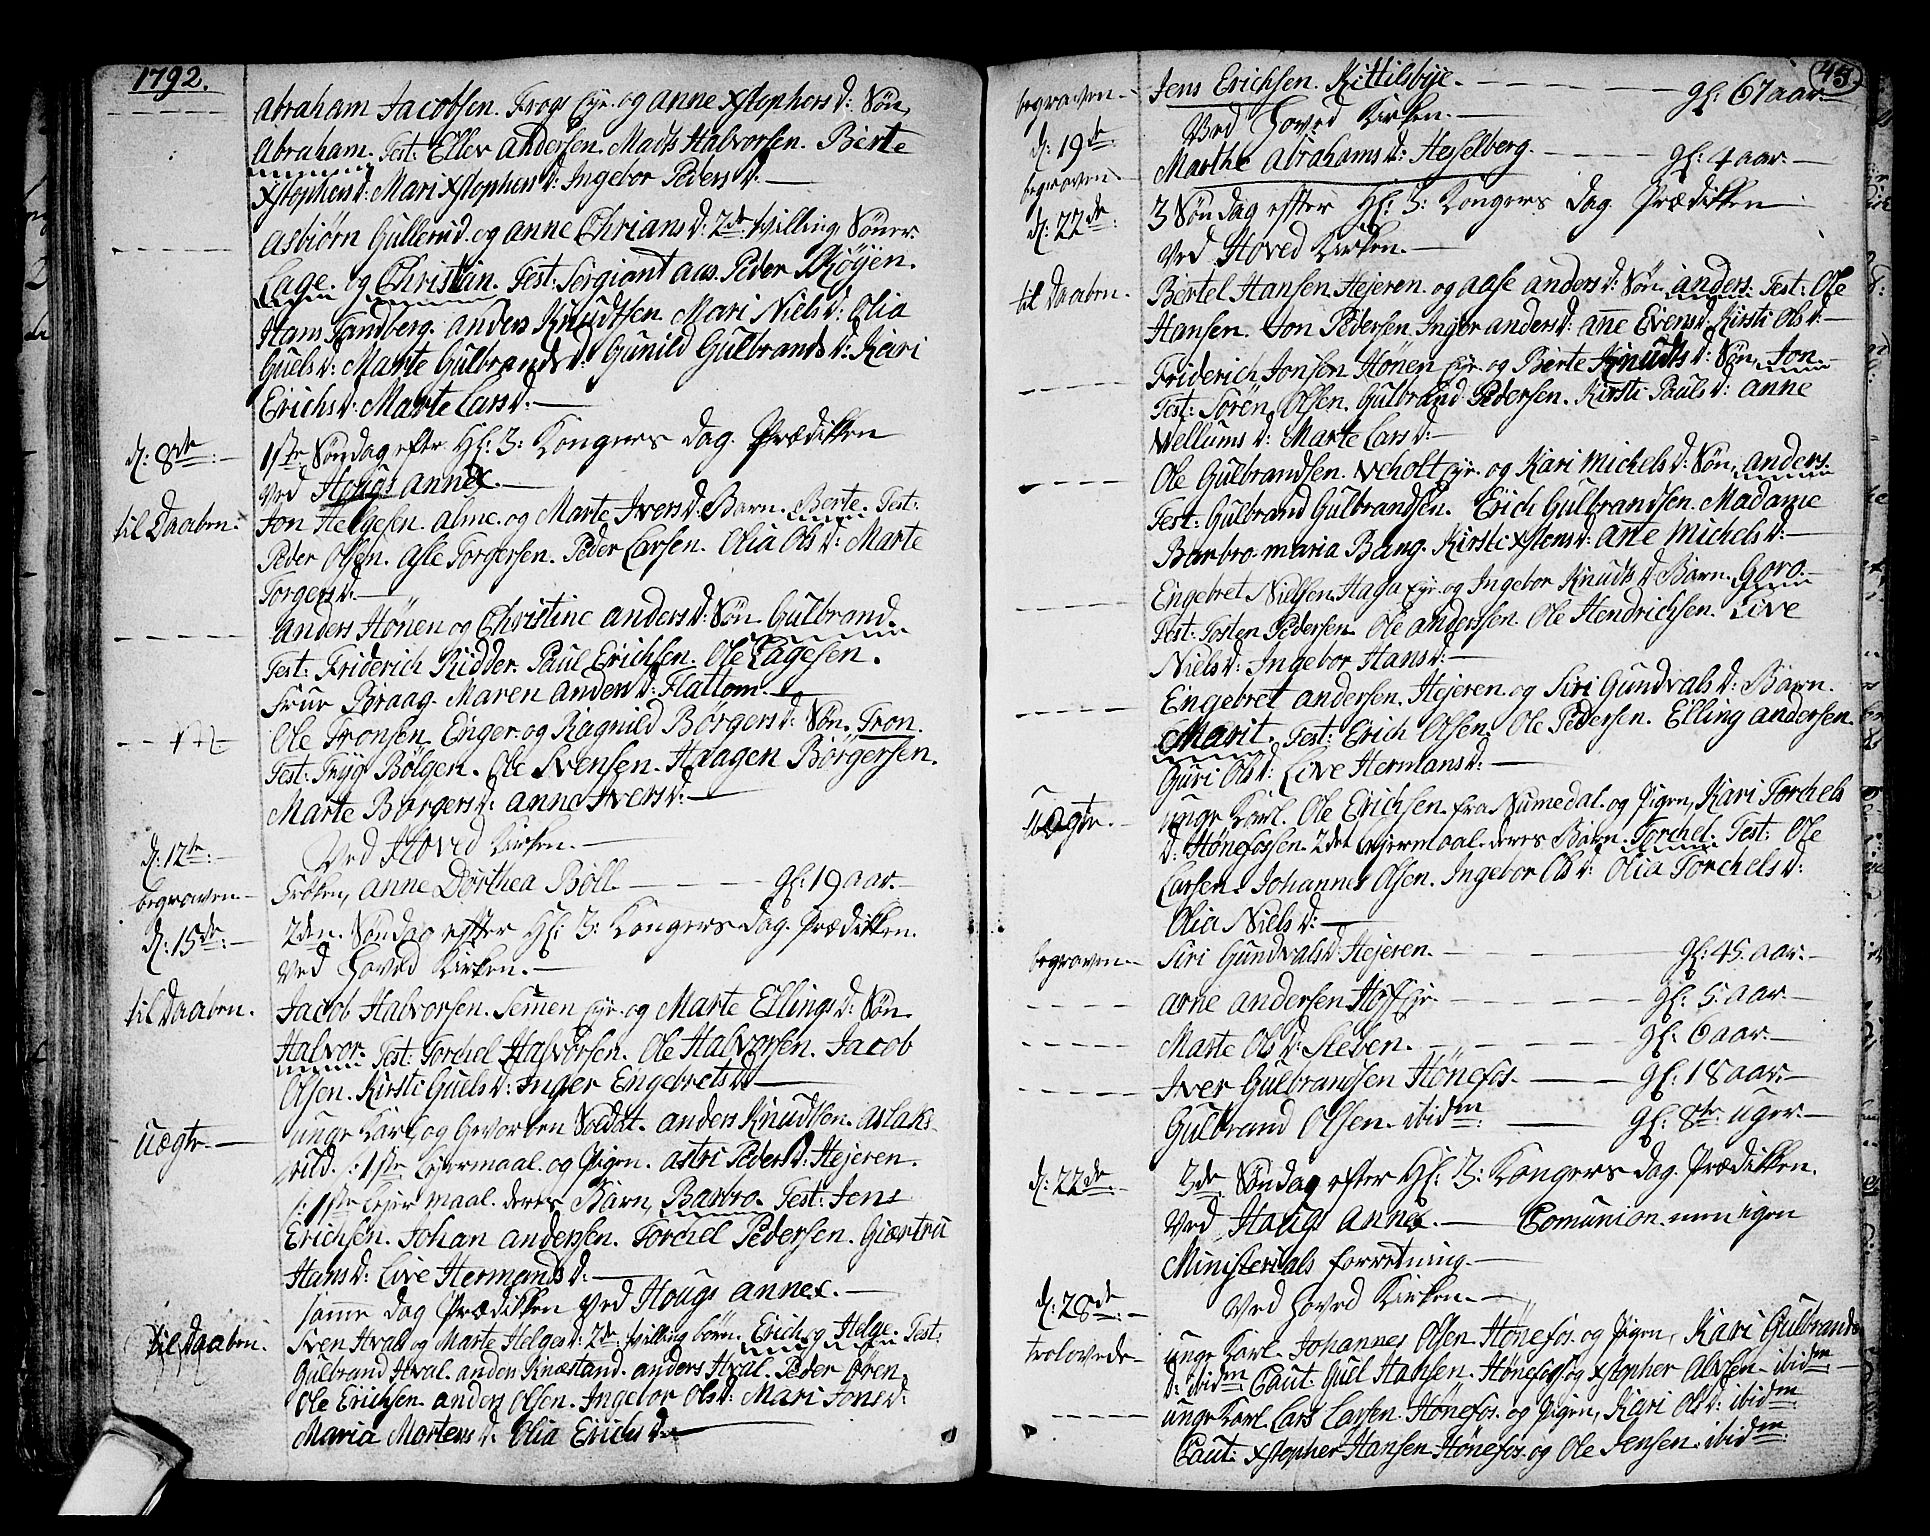 1792.
Abraham Jacobsen. Frogs Eye. og Anne Xstophers d: Søn,
Abraham. Test: Ellev Andersen. Mads Halvorsen. Berte
Xstophers d: Mari Xstophers d: Ingebor Peders d.
Asbiörn Gullerud. og Anne Chrians d: 2de tvilling Sönner.
Lage. og Christian. Test: Sergiant Aas. Peder Skøyen.
Hans Sandberg. Anders Knudtsen. Mari Niels d: Olia
Guels d: Marte Gulbrands d: Gunild Gulbrands d: Kari
Erichs d: Marte Lars d:
d: 8de 1ste Søndag efter Hl: 3: Kongers Dag. Prædiken
ved Hougs Annex.
til Daaben. Jon Helgesen. Alme. og Marte Ivers d: Barn. Berte. Test:
Peder Olsen. Asle Torgersen. Peder Larsen. Olia Ols d: Marte
Torgers d:
Anders Hönen og Christine Anders d: Søn Gulbrand.
Test: Friderich Ridder. Paul Erichsen. Ole Lagesen.
Frue Braag. Maren Anders d: Flattom.
Ole Tronsen Enger. og Ragnild Börgers d: Søn. Tron.
Test: Tryg Bölgen. Ole Svensen. Haagen Börgersen.
Marte Börgers d: Anne Ivers d:
d: 12te Ved Hoved Kirken.
begraven Frøken, Anne Dorthea Böll. gl: 19 aar.
d: 15de 2den. Søndag efter Hl: 3: Kongers Dag. Prædiken.
ved Hoved Kirken.
til Daaben. Jacob Halvorsen. Semen Eye. og Marte Ellings d: Søn
Halvor. Test: Torchel Halvorsen. Ole Halvorsen. Jacob
Olsen. Kirsti Guels d: Inger Engebrets d:
Uægte. unge Karl, og Gevorben Soldat. Anders Knudtsen. Aslaks-
rud. /: 1ste Leyermaal. og Pigen. Astri Peders d: Hejeren.
/: 1ste Leyer maal. deres Barn, Barbro. Test: Jens
Erichsen. Johan Andersen. Torchel Pedersen. Giærtru
Hans d: Live Hermands d:
samme Dag Prædiken ved Hougs Annex.
til Daaben. Sven Hval og Marte Helges d: 2de tvilling börn. Erich og Helge. Test:
Gulbrand Hval. Anders Knæstand. Anders Hval. Peder Ören.
Ole Erichsen. Anders Olsen. Ingebor Ols d: Mari Jons d:
Maria Mortens d: Olia Erichs d:
43
begraven Jens Erichsen. Kittilsbye. gl: 67 aar
d: 19de Ved Hoved Kirken.
begraven Marthe Abrahams d: Hesselberg. gl: 4 aar.
d: 22de 3 Søndag efter Hl: 3: Kongers Dag Prædiken
ved Hoved Kirken.
til Daaben. Bertel Hansen Hejeren. og Aase Anders d: Søn Anders. Test: Ole
Hansen. Jon Pedersen. Inger Anders d: Anne Evens d: Kirsti Ols d:
Friderich Jonsen Hönen Eye. og Berte Knuds d: Søn. Jon.
Test: Sören Olsen. Gulbrand Pedersen. Kirsti Pauls d: Anne
Wellums d: Marte Lars d:
Ole Gulbrandsen. Veholt Eye. og Kari Michels d: Søn, Anders.
Test: Gulbrand Gulbrandsen. Erich Gulbrandsen. Madame
Barbro Maria Bang. Kirsti Xstens d: Anne Michels d:
Engebret Nielsen. Haga Eye. og Ingebor Knuds d: Barn. Goro.
Test: Tosten Pedersen. Ole Anderssen. Ole Hendrichsen. Live
Niels d: Ingebor Hans d:
Engebret Andersen. Hejeren. og Siri Gundvals d: Barn.
Marit. Test: Erich Olsen. Ole Pedersen. Elling Andersen.
Guri Ols d: Live Hermans d:
Uægte. unge Karl. Ole Erichsen. fra Numedal. og Pigen, Kari Torchels
d: Hönefossen. 2det Leyermaal. deres Barn. Torchel. Test: Ole
Larsen. Johannes Olsen. Ingebor Ols d: Olia Torchels d:
Olia Niels d:
begraven. Siri Gundvals d: Hejeren. gl: 45. aar.
Arne Andersen Hoff Eye. gl: 5. aar.
Marte Ols d: Sleben. gl: 6 aar.
Iver Gulbrandsen Hönefos. gl: 18 aar.
Gulbrand Olsen. ibidm: gl: 8te uger.
d: 22de 3de Søndag efter Hl: 3: Kongers Dag. Prædiken.
ved Haugs Annex. Comunion. men igen
Ministerials forretning.
d: 28de Ved Hoved Kirken.
trolovede unge Karl. Johannes Olsen. Hönefos. og Pigen, Kari Gulbrands
d: ibidm: Caut: Guel Hansen. Hönefos og Xstopher Olsen. ibidm:
unge Karl Lars Larsen. Hönefos. og Pigen, Kari Ols d: ibidm.
Caut: Xstopher Hansen Hönefos. og Ole Jensen. ibidm: